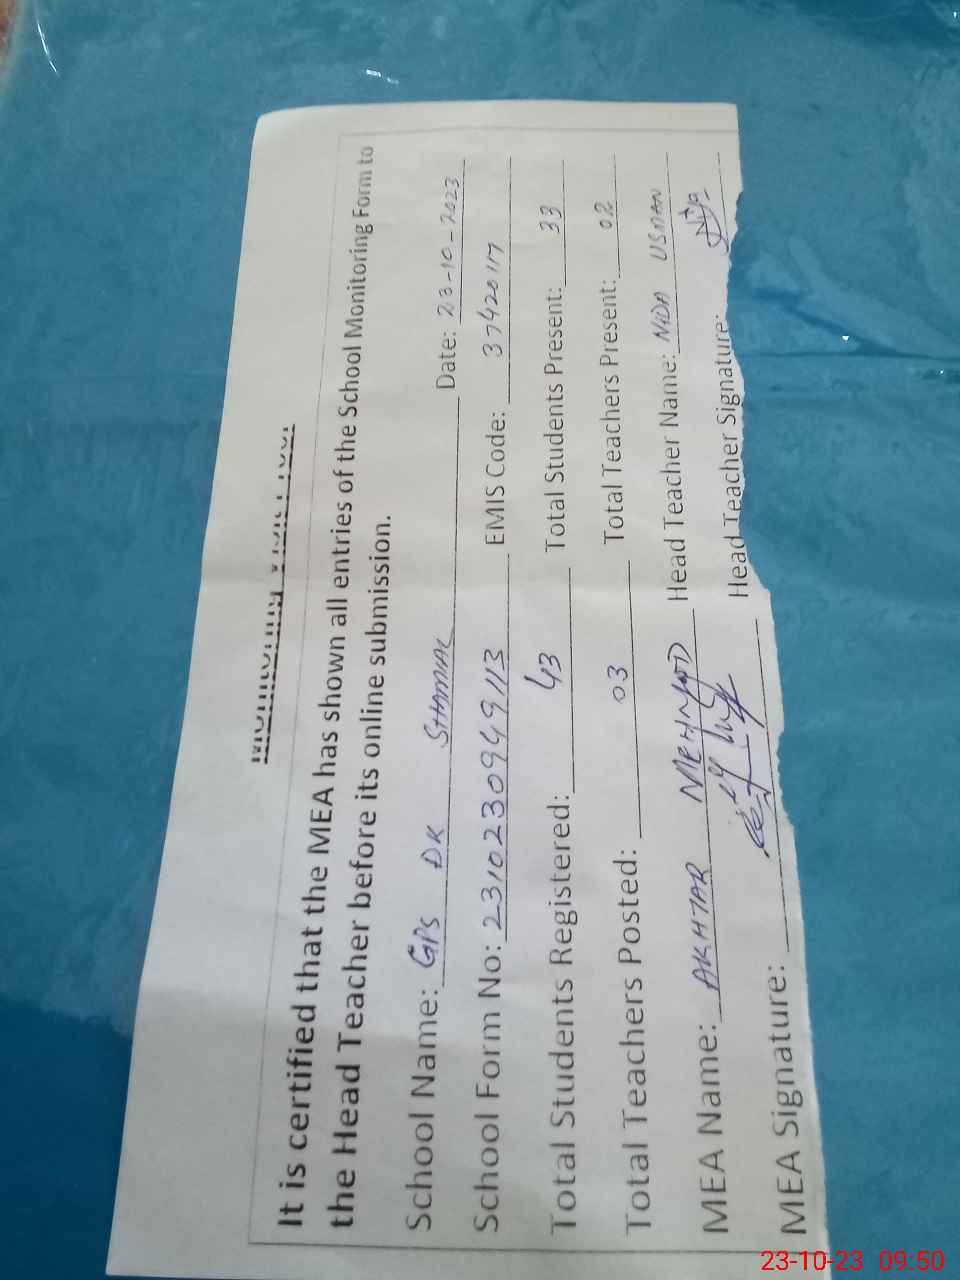 Monitoring Visit Proof
It is certified that the MEA has shown all entries of the School Monitoring Form to
the Head Teacher before its online submission.
School Name: GPS DK SHAMIAL Date: 23-10-2023
School Form No: 231023094949113 EMIS Code: 37420117
Total Students Registered: 43 Total Students Present: 33
Total Teachers Posted: 03 Total Teachers Present: 02
MEA Name: AKHTAR MEHMOOD Head Teacher Name: NIDA USMAN
MEA Signature: Head Teacher Signature: Nida
23-10-23 09:50